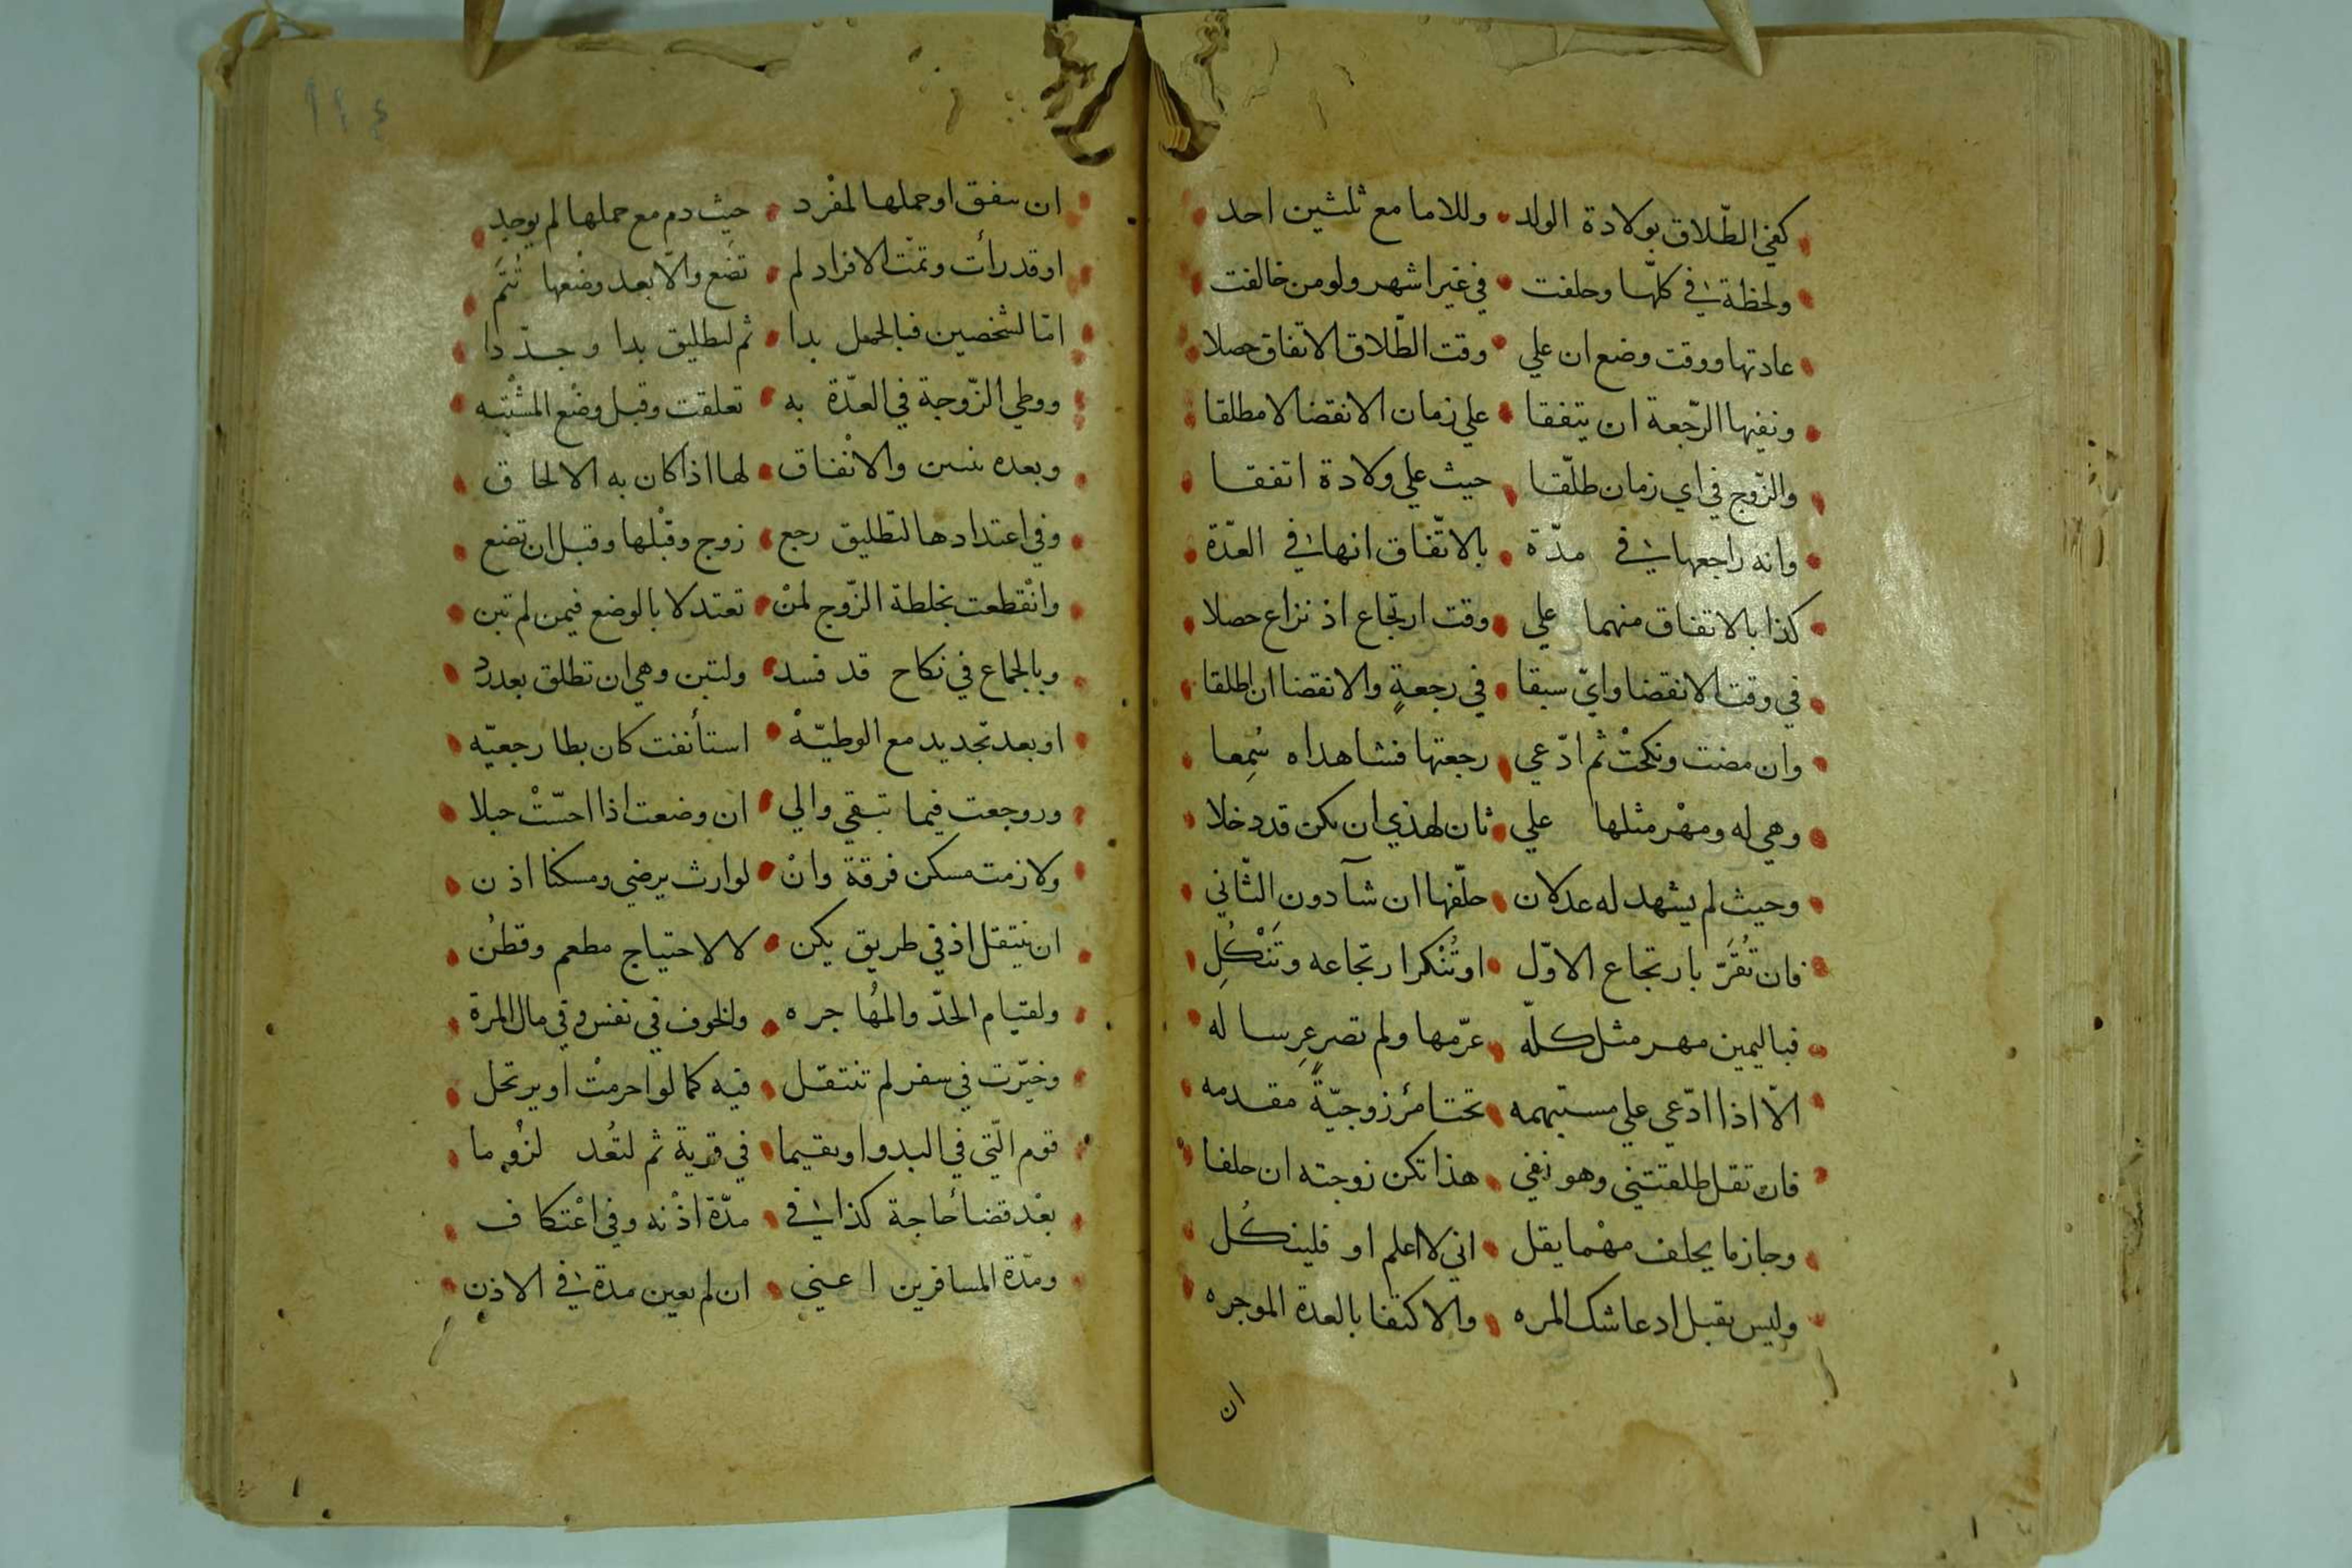 كفي الطّلاق بولادة الولد وللاما مع ثلثين احد
ولحظة في كلّها وحلفت في غير اشهر ولو من خالفت
عادتها ووقت وضع ان علي وقت الطّلاق الاتفاق حصلا
ونفيها الرّجعة ان يتفقا علي زمان الانقضا لا مطلقا
والزّوج في اي زمان طلّقا حيث علي ولادة اتفقا
وانه راجعها في مدّة بالاتّفاق انها في العدّة
كذا بالاتفاق منهما علي وقت ارتجاع اذ نزاع حصلا
في وقت الانقضا وايّ سبقا في رجعةٍ والانقضا ان اطلقا
وان مضت ونكحتْ ثم ادّعي رجعتها فشاهداه سُمِعا
وهي له ومهْر مثلها علي ثان لهذي ان يكن قد دخلا
وحيث لم يشهد له عدلان حلّفها ان شآ دون الثّاني
فان تُقَرّ بارتجاع الاوّل او تُنْكر ارتجاعه وتَنْكُلِ
فباليمين مهر مثل كلّه غرّمها ولم تصر عِرسا له
الّا اذا ادّعي علي مستبهمه تحتامرئ زوجيّةً مقدمه
فان تقل طلقتني وهو نفي هذا تكن زوجته ان حلفا
وجاز ما يحلف مهْما يقل اني لا اعلم او فلينكُل
وليس يقبل ادعا شك المره والاكتفا بالعدة الموجره
ان
١١٤
ان ينفق او حملها لمفْرد حيث دم مع حملها لم يوجد
او قد رأت وتمّت الافراد لم تضَع والّا بعد وضْعها تُتَمّ
امّا لشخصين فبالحمل بدا ثم لتطليق بدا وجدّدا
ووطي الزّوجة في العدّة به تعلقت وقبل وضْع المشْتبه
وبعده والانْفاق لها اذا كان به الالحاق
وفي اعتدادها لتطليق رجع زوج وقبْلها وقبل ان تضع
وانْقطعت بخلطة الزّوج لمنْ تعتد لا بالوضع فيمن لم تبن
وبالجماع في نكاح قد فسد ولتبن وهي ان تطلق بعدد
او بعد تجديد مع الوطيّهْ استأنفت كان بطا رجعيّه
وروجعت فيما تبقي والي ان وضعت اذا احسّتْ حبلا
ولازمت مسكن فرقة وانْ لوارث يرضي ومسكنا اذن
ان ينتقل اذ في طريق يكن لا لاحتياج مطعم وقطنُ
ولقيام الحدّ والمُهاجره والخوف في نفس وفي مال المرة
وخيّرت في سفر لم تنتقل فيه كما لو احرمتْ او يرتحل
قوم الّتي في البدو او يقيما في قرية ثم لتعُد لزُوما
بعْد قضأ حاجة كذا في مدّة اذْنه وفي اعْتكاف
ومدّة المسافرين اعني ان لم يعين مدة في الاذن